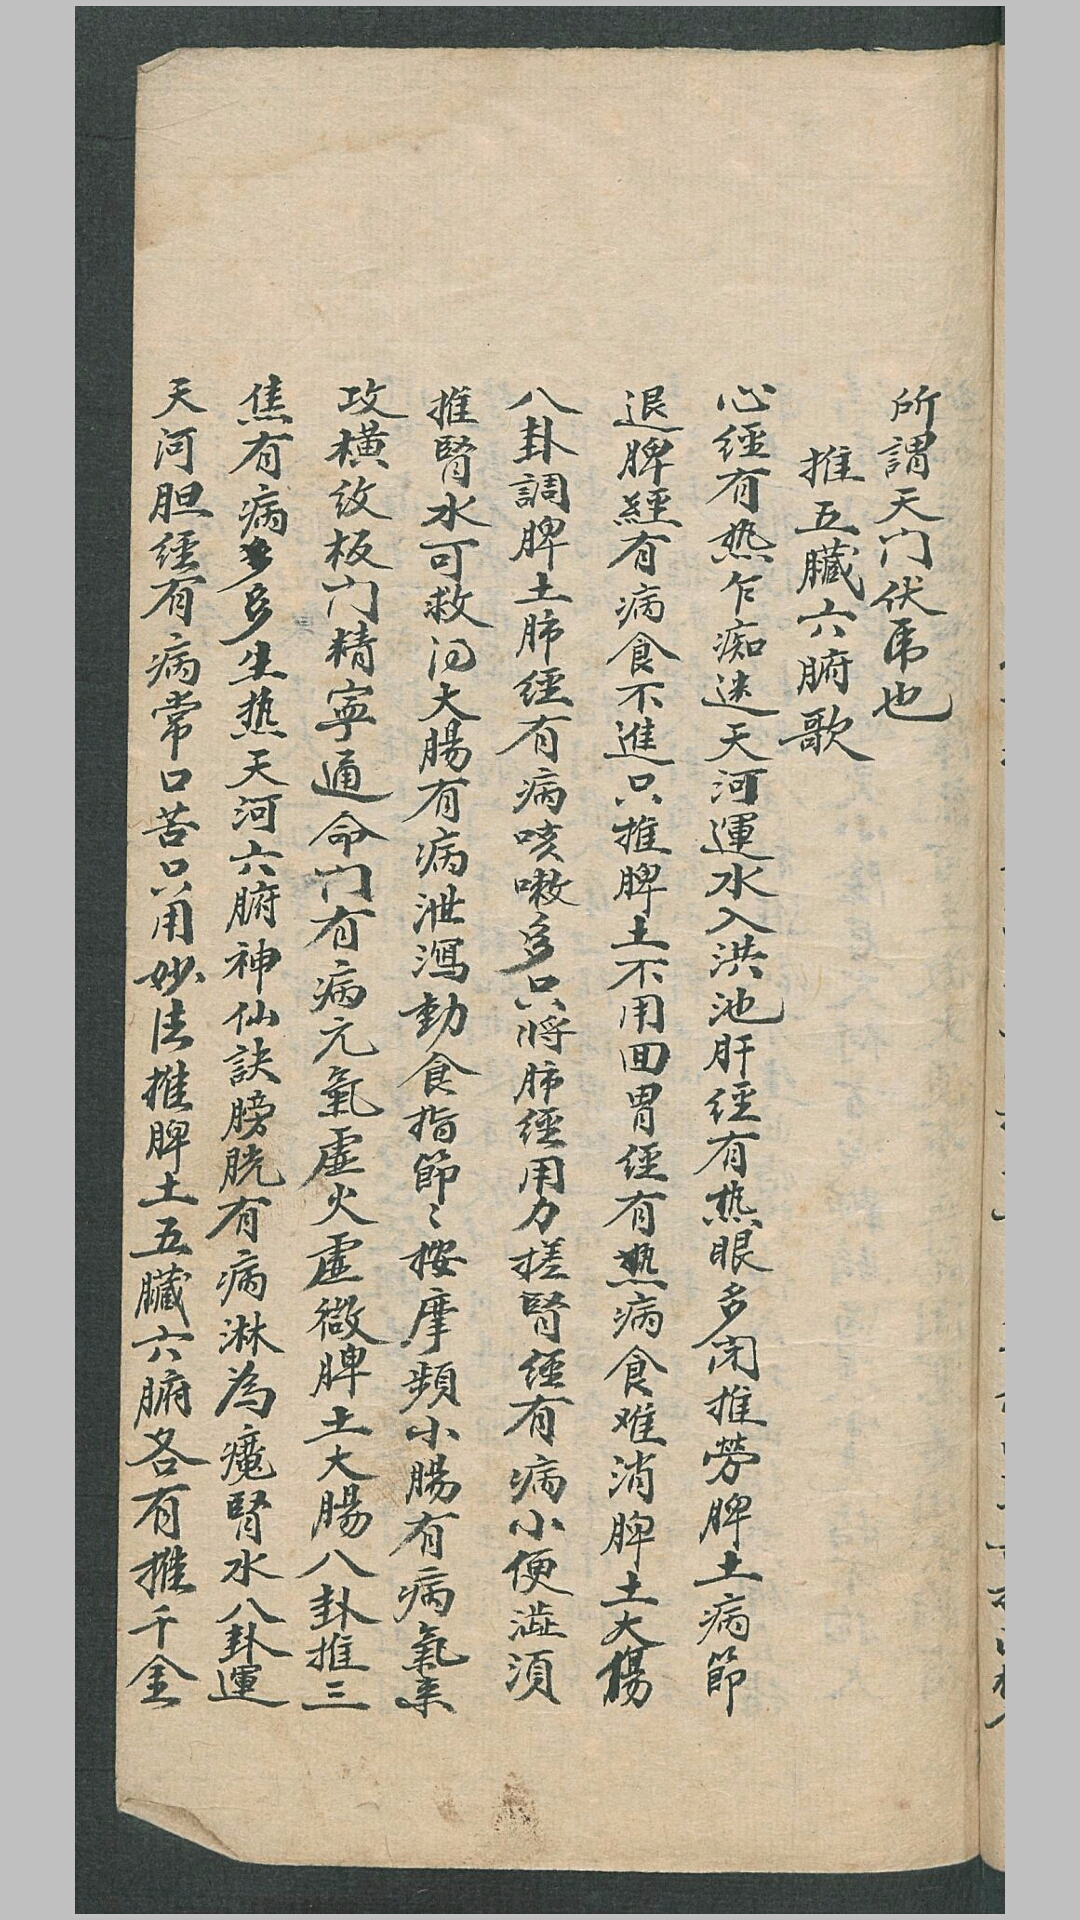 所謂天门伏帍也
推五臟六腑歌
心經有热乍痴迷天河運水入洪池肝經有热眼多闭推劳脾土病節
退脾經有病食不進只推脾土不用囬胃經有热病食难消脾土大傷
八卦調脾土肺經有病咳嗽多只将肺經用力搓腎經有病小便澁須
推腎水可救大腸有病泄瀉勤食指節〻按摩頻小腸有病氣来
攻横纹板门精寧通命门有病元氣虚火虚微脾土大腸八卦推三
焦有病多多生热天河六腑神仙訣膀胱有病淋為腎水八卦運
天河胆經有病常口苦只用妙法推脾土五臟六腑各有推千金